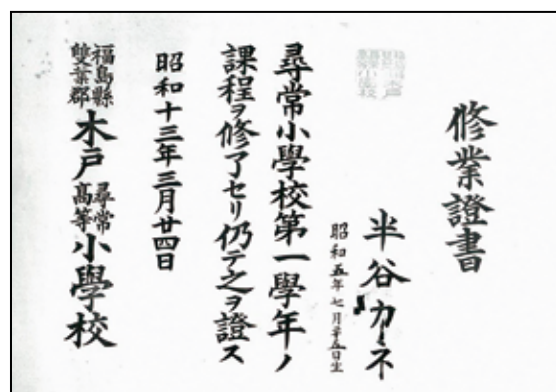 修業證書
半谷カネ
昭和五年七月廿五日生
尋常小學校第一學年ノ
課程ヲ修了セリ仍テ之ヲ證ス
昭和十三年三月廿四日
福島縣雙葉郡木戸尋常高等小學校